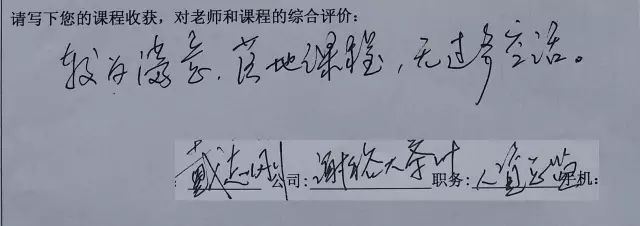 请写下您的课程收获，对老师和课程的综合评价：
较为满意，落地课程，无过多空话。
公司：谢裕大茶叶 职务： 手机：